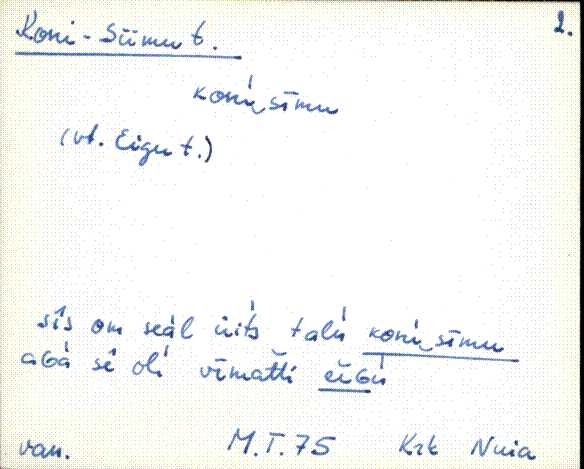 Koni-Siimu t.
2.
koni̮ sīmu
(vt. Eigu t.)
sîs om seäl üits talu koni̮ sīmu
aGa sê oli vīmatti eiGu
van. M.T.75 Krk Nuia